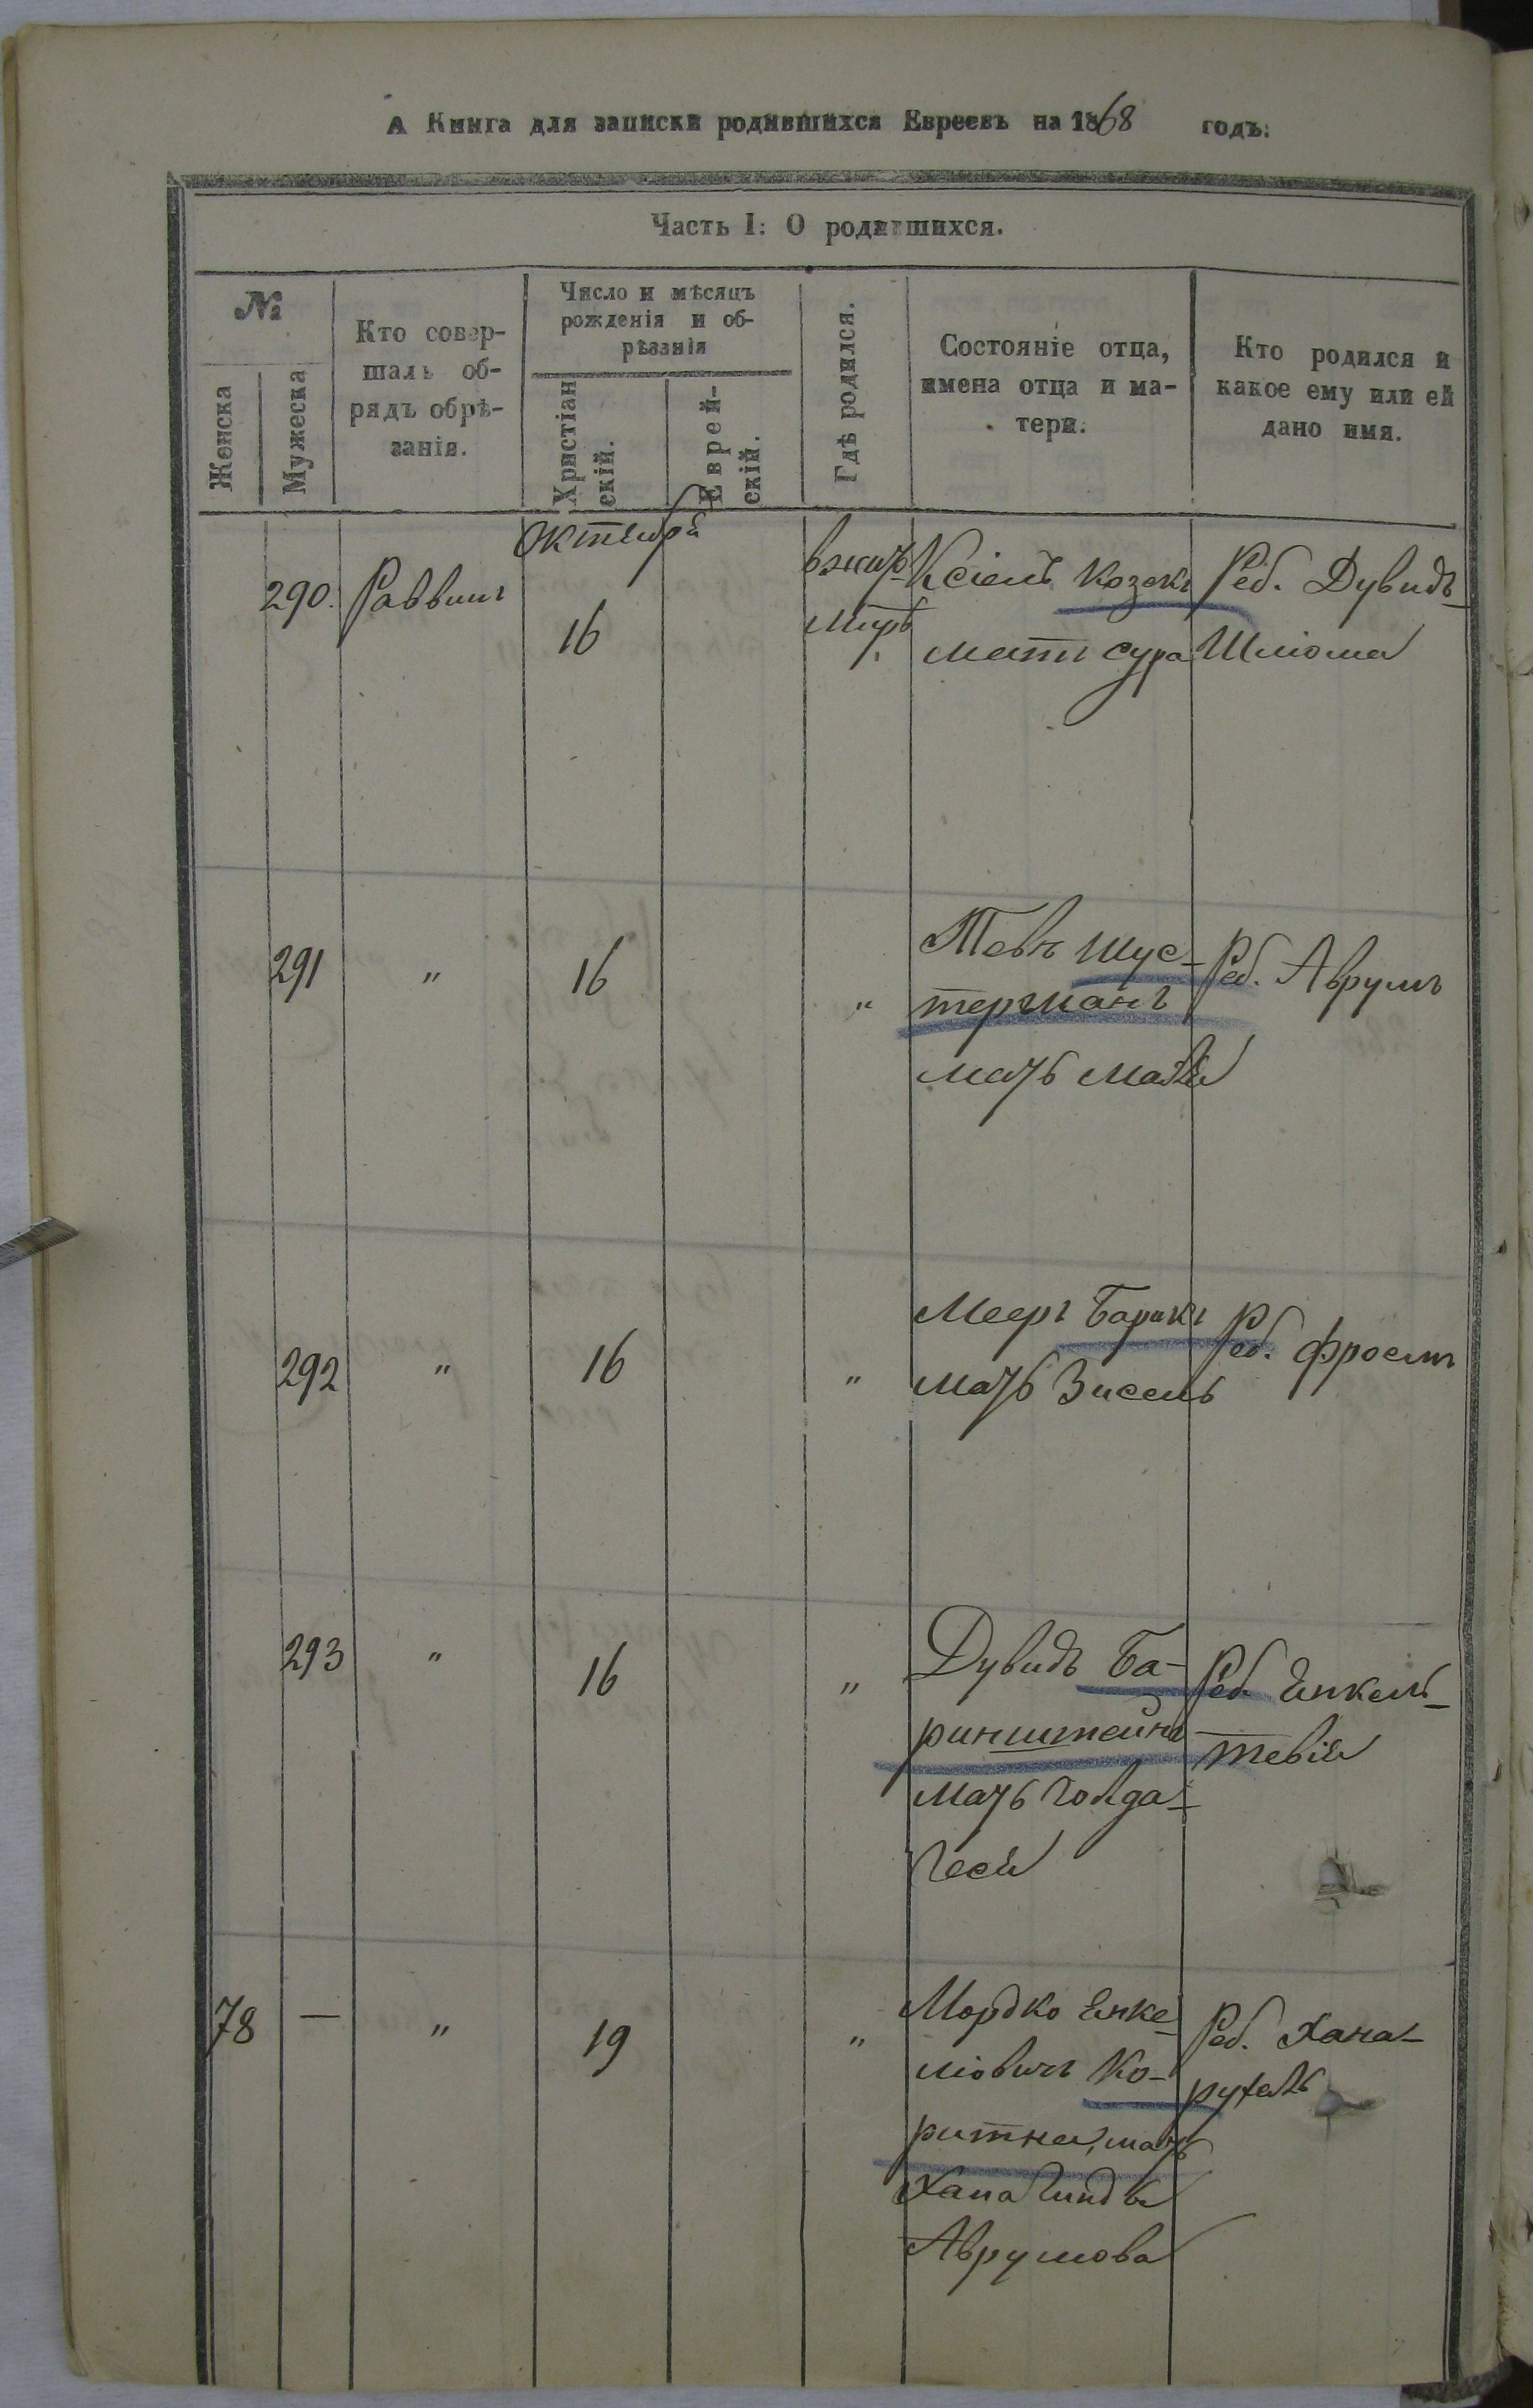 А Книга для записки родившихся Евреевъ на 1868 годъ:
Часть I: О родившихся.
№
Женска
Мужеска
Кто совер-
шалъ об-
рядъ обрѣ-
занія.
Число и мѣсяцъ
рожденія и об-
рѣзанія
Христіан
скій.
Еврей-
скій.
Гдѣ родился.
Состояніе отца,
имена отца и ма-
тери.
Кто родился и
какое ему или ей
дано имя.
Октября
290. Раввинъ 16
Ксіелъ Козакъ
мати Сура
Реб. Дувидъ-
Шліома
291 " 16 "
Тевъ Шус-
терманъ
мать
Реб. Аврумъ
292 " 16 "
Мееръ Барикъ
мать Зисель
Реб. Фроемъ
293 " 16 "
Дувидъ Ба-
ринштейнъ
мать Голда-
Геся
Реб. Енкель-
тевія
78 — " 19 "
Мордко Енке-
ліовичъ Ко-
ритна, мать
Хана Гиндя
Аврумова
Реб. Хана-
рухель